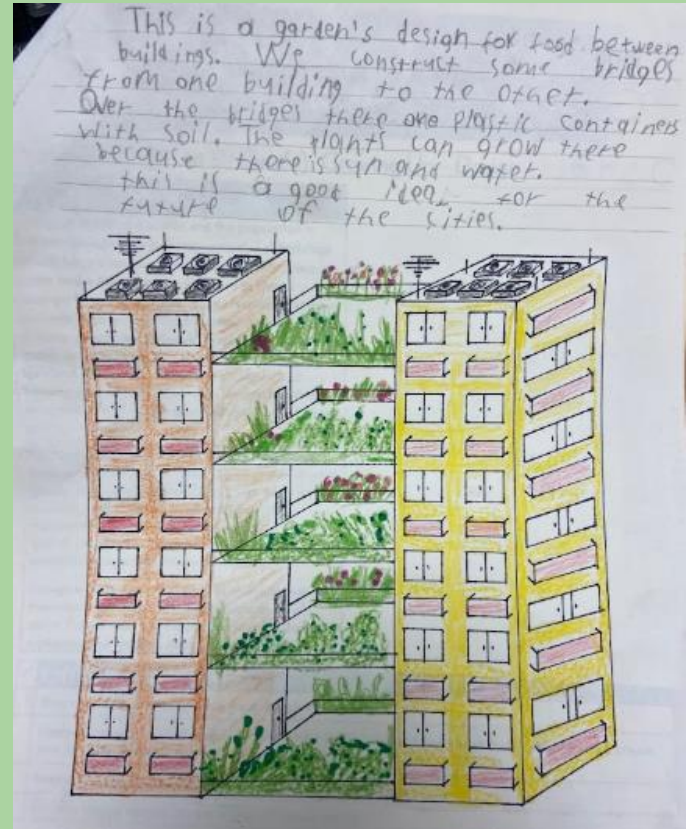 This is a garden's design for food between
buildings. We construct some bridges
from one building to the other.
Over the bridges there are plastic containers
with soil. The plants can grow there
because there is sun and water.
this is a good idea for the
future of the sities.